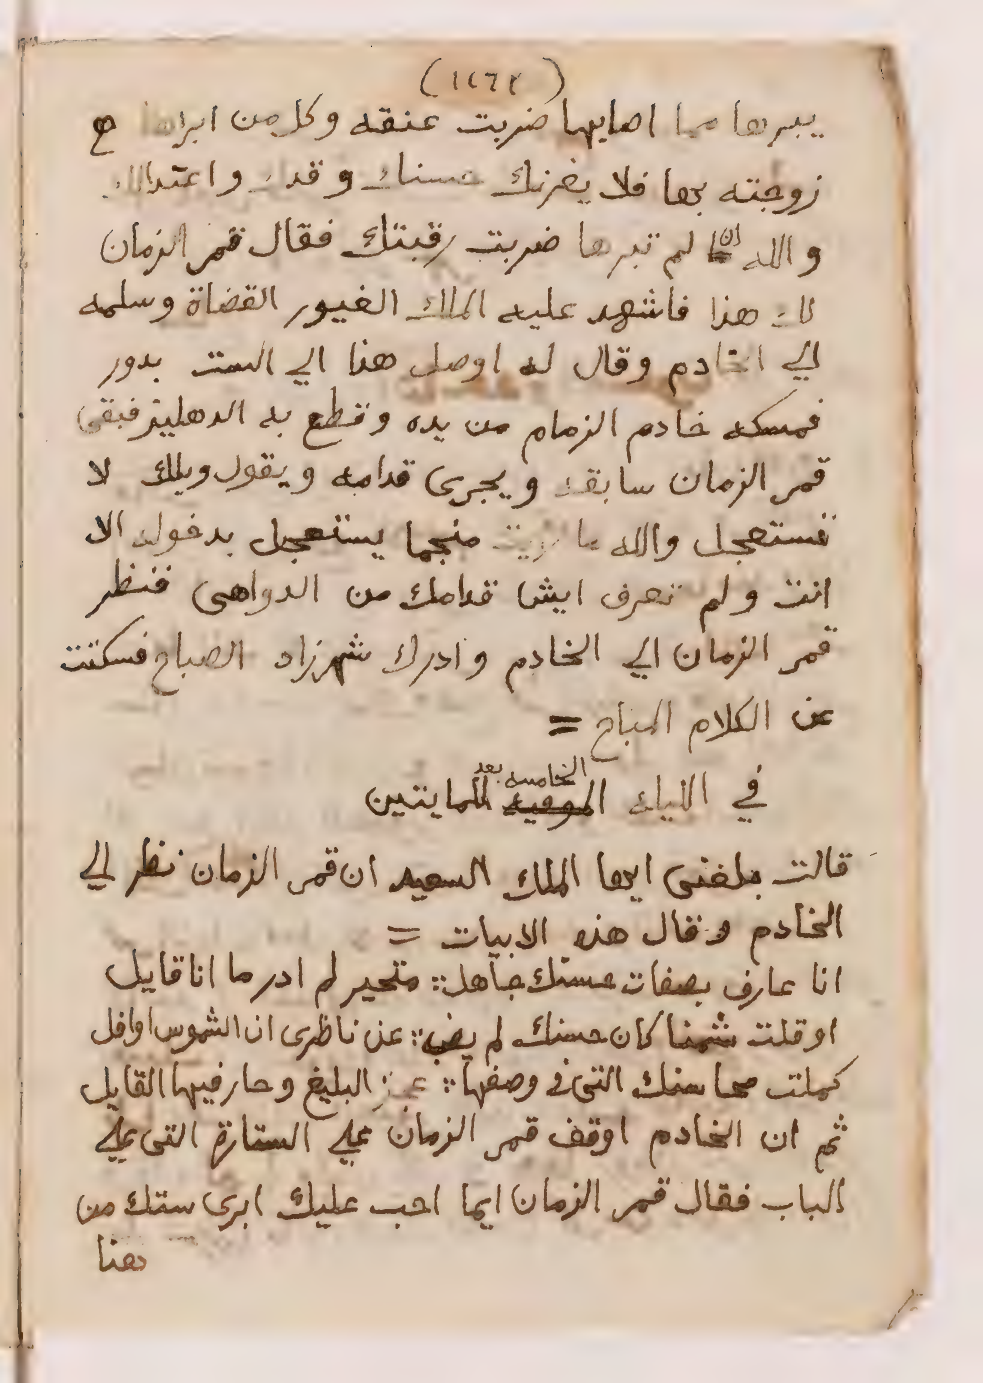 (١٤٦٢)
يبريها مما اصابها ضربت عنقه وكل من ابراها
زوجته بها فلا يغرنك حسنك وقدك واعتدالك
والله ان لم تبرها ضربت رقبتك فقال قمر الزمان
لك هذا فاشهد عليه الملك الغيور القضاة وسلمه
الي الخادم وقال له اوصل هذا الي الست بدور
فمسكه خادم الزمام من يده وقطع به الدهليز فبقى
قمر الزمان سابقه ويجرى قدامه ويقول ويلك لا
تستعجل والله ما رايت منجما يستعجل بدخوله الا
انت ولم تعرف ايش قدامك من الدواهى فنظر
قمر الزمان الي الخادم وادرك شهرزاد الصباح فسكتت
عن الكلام المباح =
في الليله الخامسه بعد المايتين
قالت بلغنى ايها الملك السعيد ان قمر الزمان نظر الي
الخادم وقال هذه الابيات =
انا عارف بصفات حسنك جاهل :: متحير لم ادر ما انا قايل
او قلت شمسا كان حسنك لم يغب :: عن ناظرى ان الشموس اوافل
كملت محاسنك التى في وصفها :: عجز البليغ وحار فيها القايل
ثم ان الخادم اوقف قمر الزمان على الستارة التى على
الباب فقال قمر الزمان ايما احب عليك ابرى ستك من
هنا